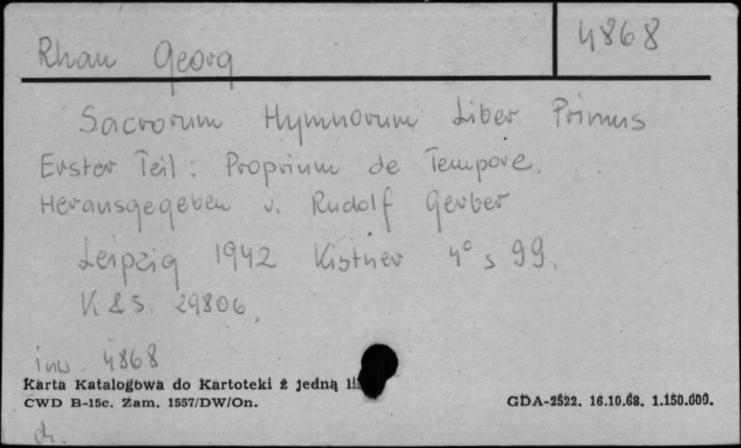 Rhau Georg
4868
Sacrorum Hymnorum Liber Primus
Erster Teil: Proprium de Tempore.
Herausgegeben v. Rudolf Gerber
Leipzig 1942 Kistner 4° s 99.
K & S. 29806.
inw. 4868
Karta Katalogowa do Kartoteki z jedną
CWD B-15c. Zam. 1557/DW/On.
GDA-2522. 16.10.68. 1.150.000.
dr.